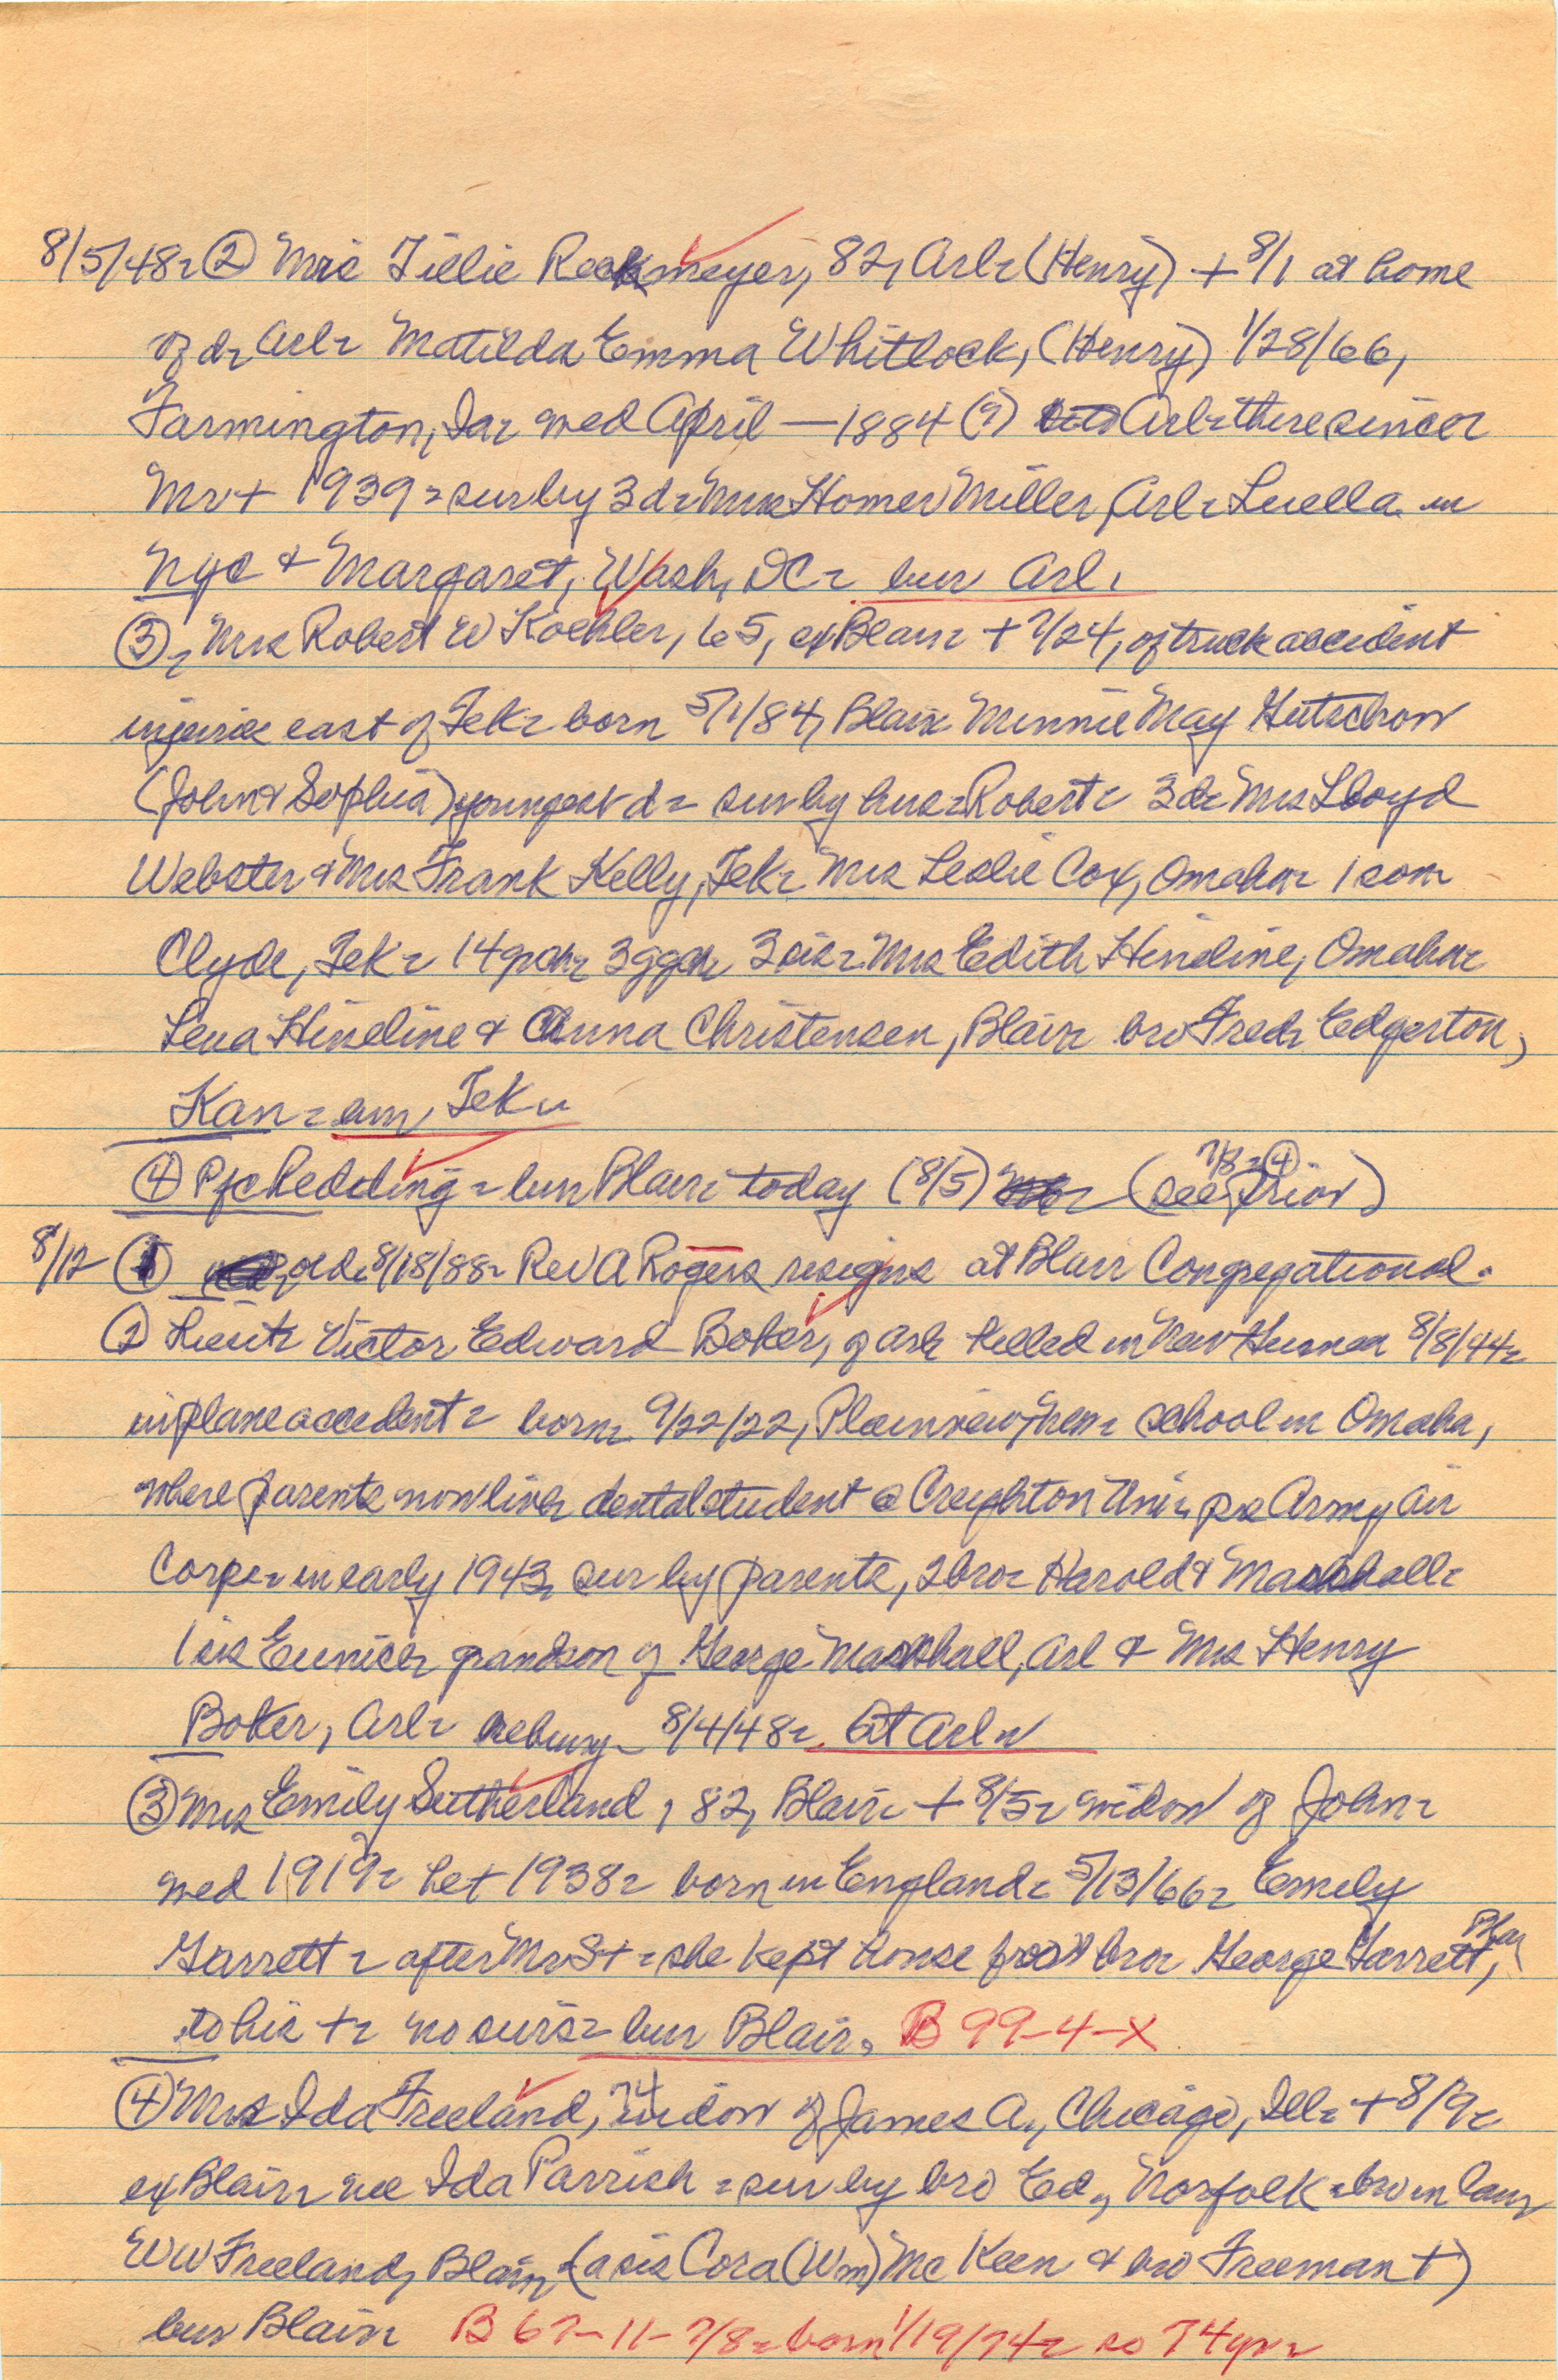 8/5/48- ② Mrs Tillie Reekmeyer, 82, Arl- (Henry) + 8/1 at home
of d- Arl- Matilda Emma Whitlock, (Henry) 1/28/66,
Farmington, Ia- wed April — 1884 (?) Arl- there since-
Mr + 1939 - sur by 3 d- Mrs Homer Miller, Arl- Luella in
NYC & Margaret, Wash, DC- bur Arl.
③- Mrs Robert W Koehler, 65, ex Blair- + 7/24, of truck accident
injuries east of Tek- born 5/1/84, Blair Minnie May Gutschow
(John & Sophia) youngest d- sur by hus- Robert- 3 d- Mrs Lloyd
Webster & Mrs Frank Kelly, Tek- Mrs Leslie Cox, Omaha- 1 son-
Clyde, Tek- 14 gch- 3 ggch 3 sis- Mrs Edith Hineline, Omaha-
Lena Hineline & Anna Christensen, Blair- bro Fred- Edgerton,
Kan- bur Tek-
④ Pfc Redding - bur Blair- today (8/5) (see prior) 7/8-④
8/12 ① old- 8/18/88- Rev A Rogers resigns at Blair Congregational.
② Lieut- Victor Edward Boker, of Arl- killed in New Guinea 8/8/44-
in plane accident- born- 9/22/22, Plainview, Neb- school in Omaha,
where parents now live- dental student @ Creighton Uni- pre Army Air
Corps- in early 1943, sur by parents, 2 bro- Harold & Marshall-
1 sis Eunice- grandson of George Marshall, Arl & Mrs Henry
Boker, Arl- rebury- 8/4/48- at Arl-
③ Mrs Emily Sutherland, 82, Blair- + 8/5- widow of John-
wed 1919- he + 1938- born in England- 5/13/66- Emily
Garrett- after Mr S + - she kept house for bro- George Garrett, Blair
to his +- no surs- bur Blair. B 99-4-X
④ Mrs Ida Freeland, 74 widow of James A., Chicago, Ill- + 8/9-
ex Blair- nee Ida Parrish- sur by bro Ed, Norfolk- bro in law
WW Freeland, Blair, (a sis Cora (Wm) McKeen & bro Freeman +)
bur Blair- B 67-11-7/8- born 1/19/74- so 74 yr-